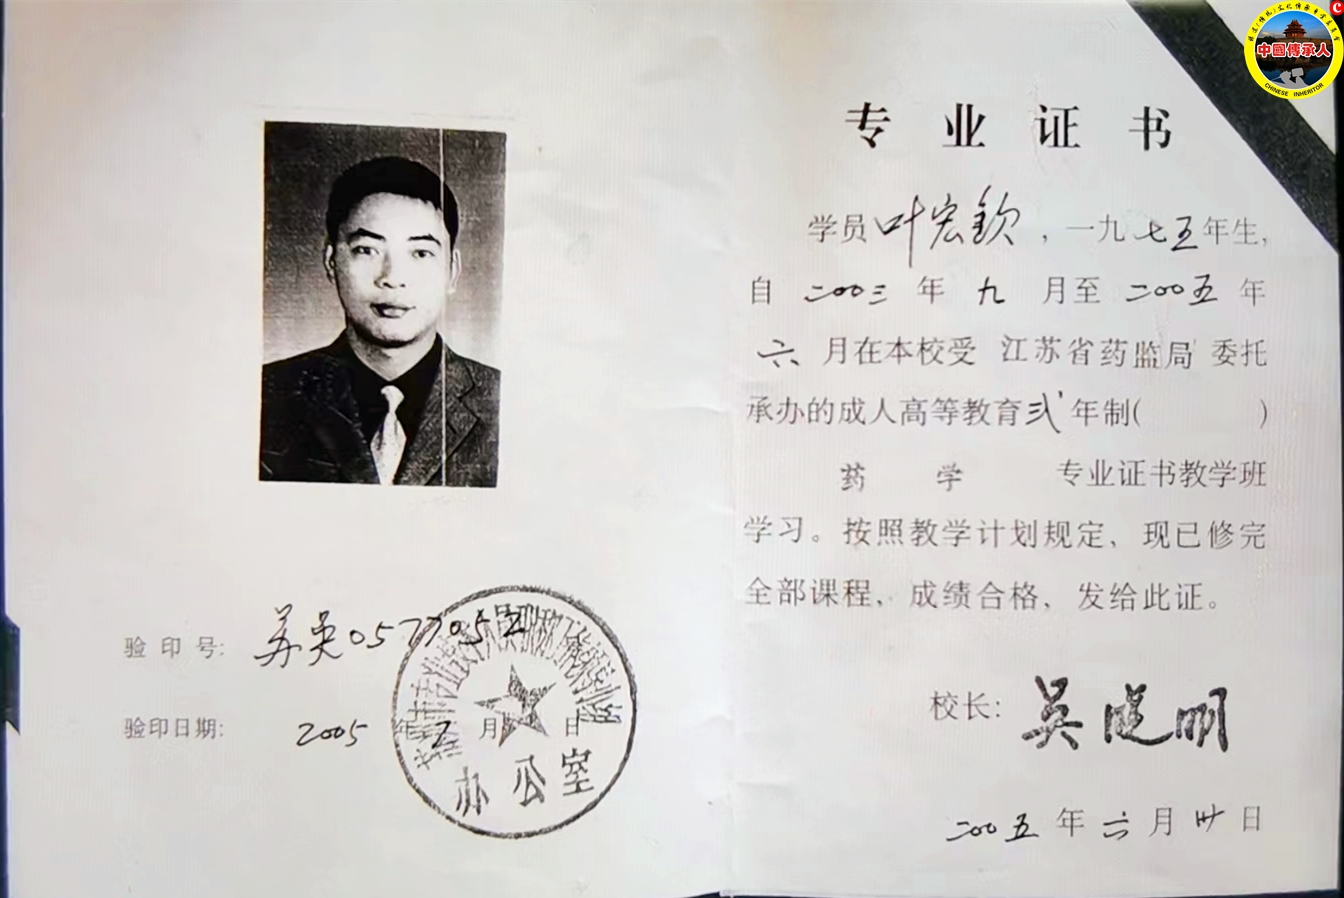 中國傳承人
CHINESE INHERITOR
专业证书
学员叶宏钦，一九七五年生，
自二00三年九月至二00五年
六月在本校受 江苏省药监局 委托
承办的成人高等教育弍年制( )
药学 专业证书教学班
学习。按照教学计划规定，现已修完
全部课程，成绩合格，发给此证。
校长：吴晓明
二00五年六月卅日
验印号：
验印日期：2005年 月 日
办公室